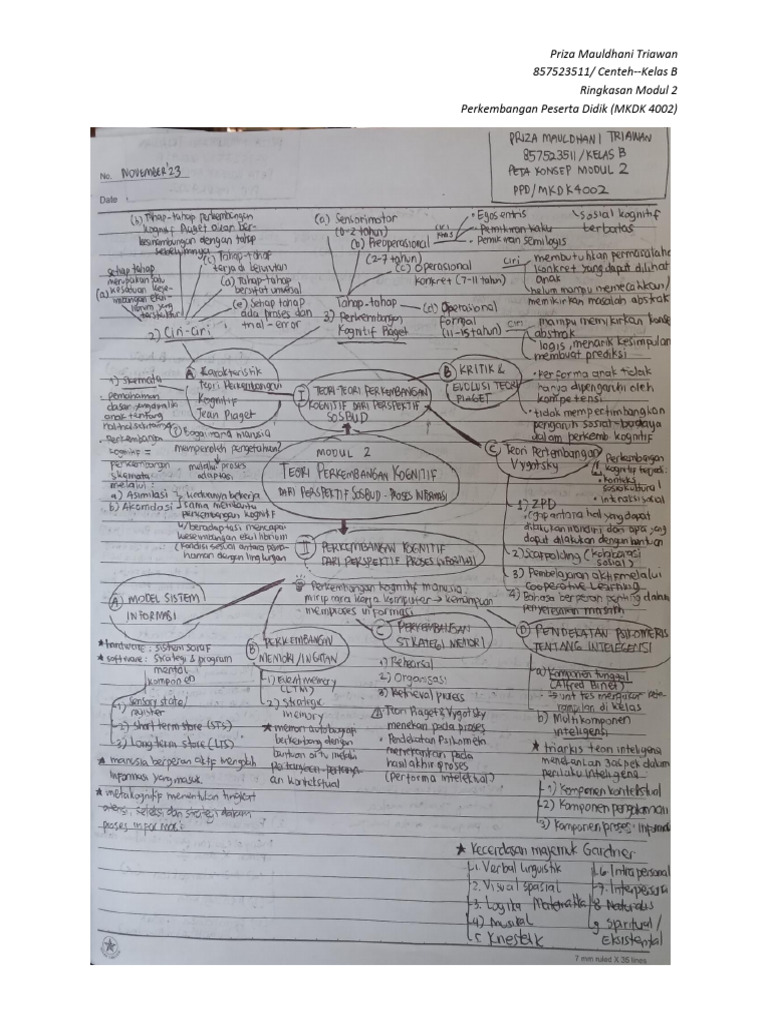 Priza Mauldhani Triawan
857523511/ Centeh--Kelas B
Ringkasan Modul 2
Perkembangan Peserta Didik (MKDK 4002)
PRIZA MAULDHANI TRIAWAN
857523511/KELAS B
PETA KONSEP MODUL 2
PPD/MKDK4002
No. NOVEMBER '23
Date :
(b) Tahap-tahap perkembangan
kognitif Piaget akan ber-
kesinambungan dengan tahap
sebelumnya
(c) Tahap-tahap
terjadi berurutan
(d) Tahap-tahap
bersifat universal
(e) Setiap tahap
ada proses dan
trial-error
setiap tahap
merupakan satu
kesatuan
(a)
2) Ciri-Ciri
(a) Sensorimotor
(0-2 tahun)
(b) Praoperasional
(2-7 tahun)
• Egosentris
• Pemikiran kaku
• Pemikiran semilogis
sosial kognitif
terbatas
(c) Operasional
konkret (7-11 tahun)
Ciri
membutuhkan permasalaha
konkret yang dapat dilihat
anak
belum mampu memecahkan/
memikirkan masalah abstrak
Tahap-tahap
3) Perkembangan
Kognitif Piaget
(d) Operasional
formal
(11-15 tahun)
Ciri
mampu memikirkan
abstrak
logis, menarik kesimpulan
membuat prediksi
A Karakteristik
Teori Perkembangan
Kognitif
Jean Piaget
I TEORI-TEORI PERKEMBANGAN
KOGNITIF DARI PERSPEKTIF
SOSBUD
B KRITIK &
EVOLUSI TEORI
PIAGET
• Performa anak tidak
hanya dipengaruhi oleh
kompetensi
• tidak mempertimbangkan
pengaruh sosial-budaya
dalam perkemb kognitif
1) Skemata
pemahaman
anak tentang
Bagaimana manusia
memperoleh pengetahuan?
melalui proses
adaptasi
Perkembangan
kognitif =
perkembangan
skemata
melalui :
a) Asimilasi
b) Akomodasi
keduanya bekerja
sama membantu
perkembangan kognitif
u/beradaptasi mencapai
keseimbangan ekuilibrium
(kondisi sesuai antara pema-
haman dengan lingkungan
MODUL 2
TEORI PERKEMBANGAN KOGNITIF
DARI PERSPEKTIF SOSBUD - PROSES INFORMASI
C Teori Perkembangan
Vygotsky
Perkembangan
kognitif terjadi
• Konteks
sosiokultural
• interaksi sosial
1) ZPD
• (gap antara hal yang dapat
dilakukan mandiri dan apa yang
dapat dilakukan dengan bantuan
2) Scaffolding (kolaborasi
sosial)
3) Pembelajaran aktif melalui
Cooperative Learning
4) Bahasa berperan penting dalam
penyelesaian masalah
II PERKEMBANGAN KOGNITIF
DARI PERSPEKTIF PROSES INFORMASI
Perkembangan kognitif manusia
mirip cara kerja komputer → kemampuan
memproses informasi
A MODEL SISTEM
INFORMASI
★ hardware : sistem saraf
★ software : strategi & program
mental
komponen
1) Sensory store/
register
2) Short term store (STS)
3) Long term store (LTS)
★ manusia berperan aktif mengolah
informasi yang masuk
★ metakognitif menentukan tingkat
atensi, seleksi dan strategi dalam
proses informasi
B PERKEMBANGAN
MEMORI/INGATAN
1) Event memory
(LTM)
2) Strategic
memory
★ memori autobiografi
berkembang dengan
bantuan ortu melalui
pertanyaan-pertany-
an kontekstual
C PERKEMBANGAN
STRATEGI MEMORI
1) Rehearsal
2) Organisasi
3) Retrieval proses
Teori Piaget & Vygotsky
menekan pada proses
• Pendekatan Psikometri
menekankan pada
hasil akhir proses
(performa intelektual)
D PENDEKATAN PSIKOMETRIS
TENTANG INTELEGENSI
a) Komponen tunggal
(Alfred Binet)
→ unt tes mengukur kete-
rampilan di kelas
b) Multikomponen
inteligensi
★ triarkis teori inteligensi
menekankan 3 aspek dalam
perilaku inteligensi
1) Komponen kontekstual
2) Komponen pengalaman
3) Komponen proses informasi
★ Kecerdasan majemuk Gardner
1. Verbal linguistik
2. Visual spasial
3. Logika Matematika
4) Musikal
5. Kinestetik
6 Intrapersonal
7. Interpersona
8 Naturalis
9 Spiritual /
Eksistensial
7 mm ruled X 36 lines